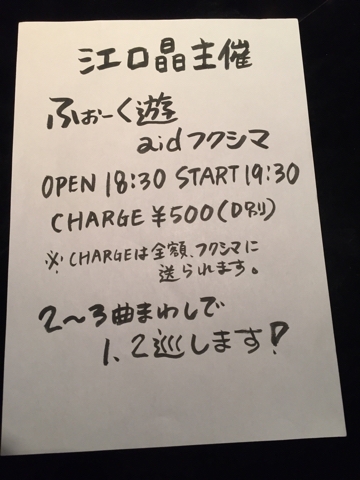 江口晶主催
ふぉーく遊
aidフクシマ
OPEN 18:30 START 19:30
CHARGE ¥500(D別)
※CHARGEは全額、フクシマに
送られます。
2〜3曲まわしで
1、2巡します!